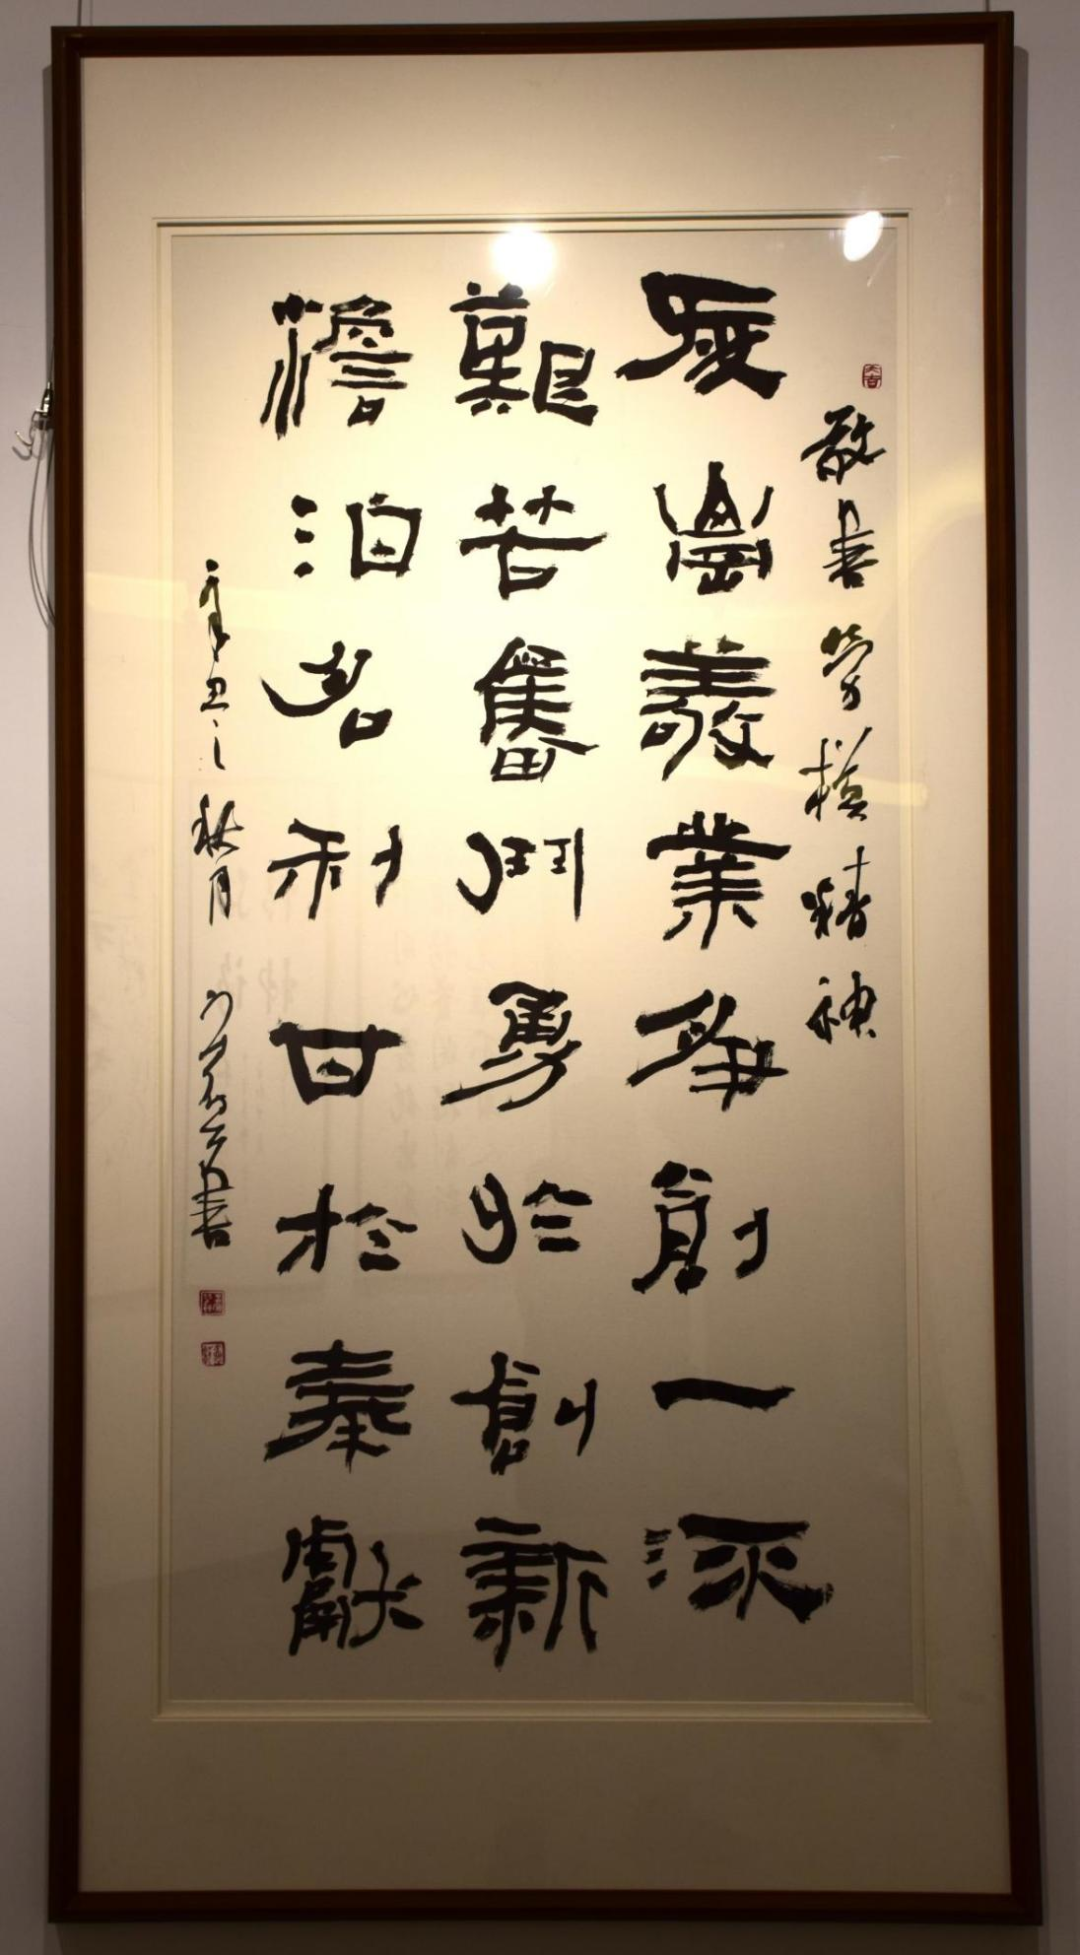 敬書勞模精神
爱崗敬業争創一流
艱苦奮鬥勇於創新
澹泊名利甘於奉獻
辛丑之秋月 書